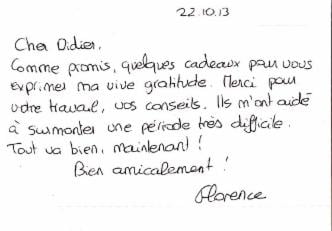 22.10.13
Cher Didier,
Comme promis, quelques cadeaux pour vous
exprimer ma vive gratitude. Merci pour
votre travail, vos conseils. Ils m'ont aidé
à surmonter une période très difficile.
Tout va bien, maintenant !
Bien amicalement !
Florence